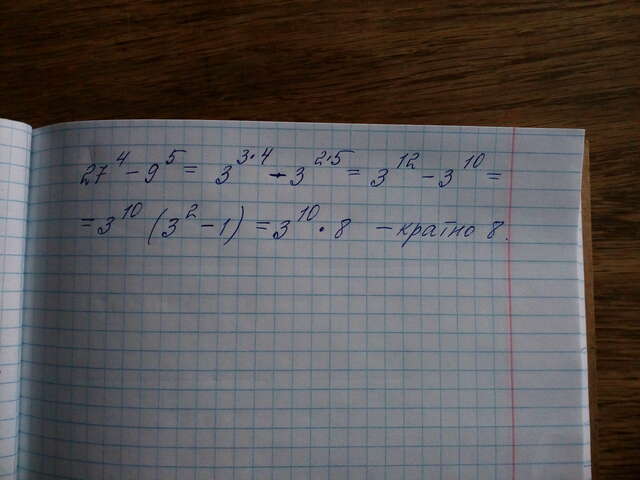 27⁴ - 9⁵ = 3³·⁴ - 3²·⁵ = 3¹² - 3¹⁰ =
= 3¹⁰ (3² - 1) = 3¹⁰ · 8 - кратно 8.